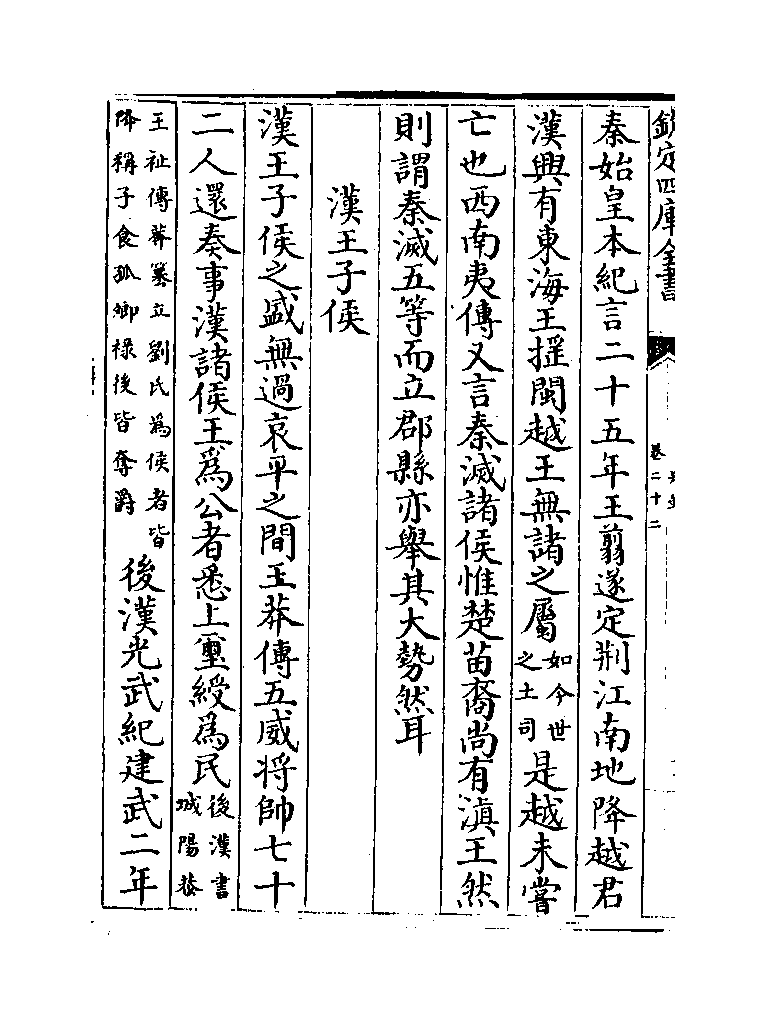 欽定四庫全書
卷二十二
秦始皇本紀言二十五年王翦遂定荆江南地降越君
漢興有東海王揺閩越王無諸之屬如今世之土司是越未嘗
亡也西南夷傳又言秦滅諸侯惟楚苗裔尚有滇王然
則謂秦滅五等而立郡縣亦舉其大勢然耳
漢王子侯
漢王子侯之盛無過哀平之間王莽傳五威将帥七十
二人還奏事漢諸侯王爲公者悉上璽綬爲民後漢書城陽恭
王祉傳莽篡立劉氏爲侯者皆降稱子食孤卿祿後皆奪爵後漢光武紀建武二年